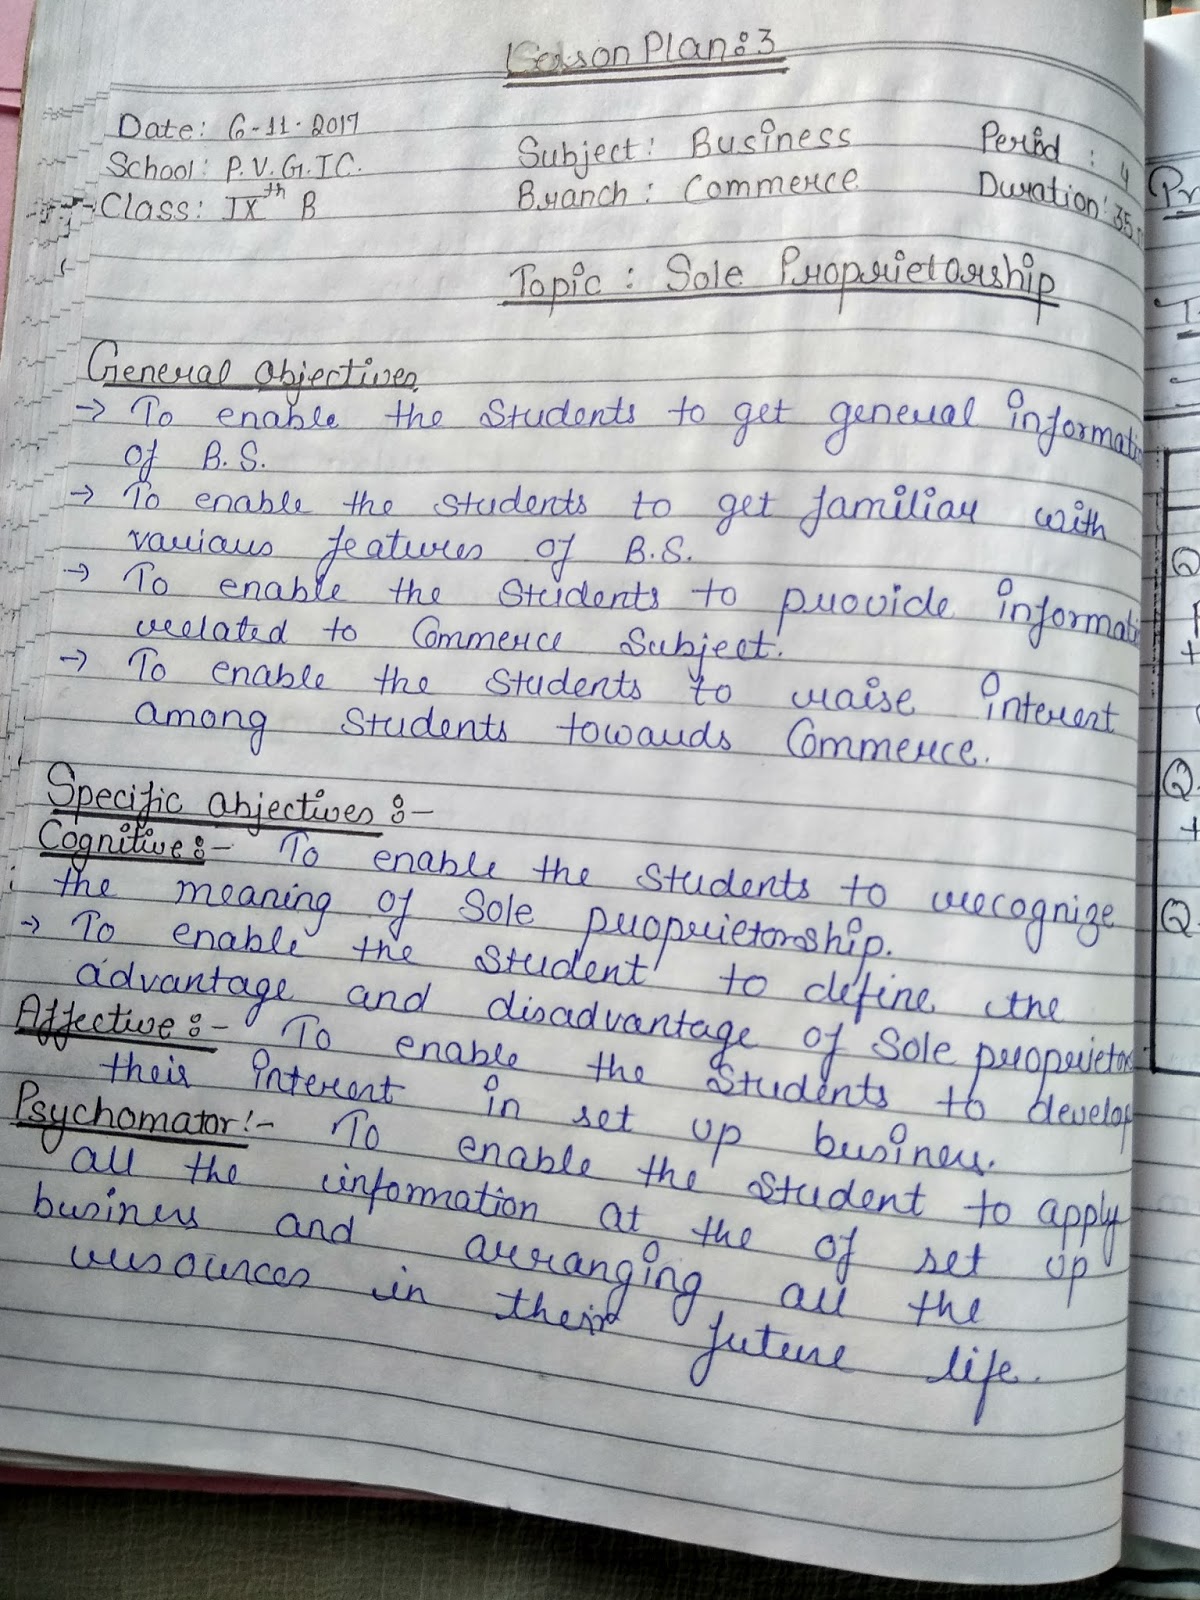 Lesson Plan: 3
Date: 6-11-2017
School: P.V.G.I.C.
Class: IXth B
Subject: Business
Branch: Commerce
Period : 4
Duration: 35
Topic : Sole Proprietorship
General objectives
→ To enable the Students to get general informati
of B.S.
→ To enable the students to get familiar with
various features of B.S.
→ To enable the Students to provide informati
related to Commerce Subject.
→ To enable the Students to raise interest
among Students towards Commerce.
Specific objectives :-
Cognitive :- To enable the Students to recognize
the meaning of Sole proprietorship.
→ To enable the student to define the
advantage and disadvantage of Sole proprietor
Affective :- To enable the Students to develop
their interest in set up business.
Psychomator :- To enable the student to apply
all the information at the of set up
business and arranging all the
resources in their future life.
Pr
Q
+
Q.
+
Q.